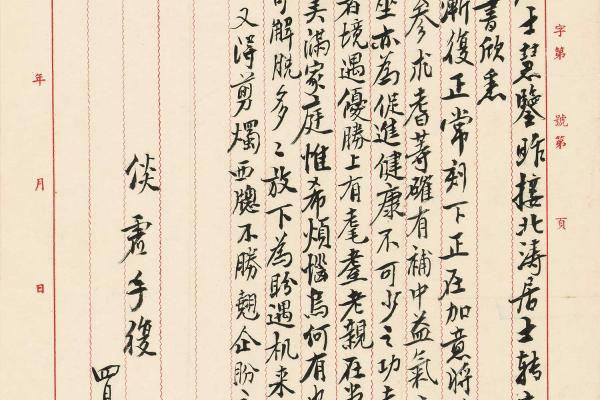 字第　號第　頁
士慧鑒昨接北濤居士转
書欣悉
漸復正常刻下正在加意將
參朮耆苓確有補中益氣
坐亦為促進健康不可少之功
者境遇優勝上有耄耋老親在
美滿家庭惟希煩惱烏何有
可解脫多々放下為盼遇机来
又得剪燭西牕不勝翹企盼
倓虛手復
四月
年　月　日